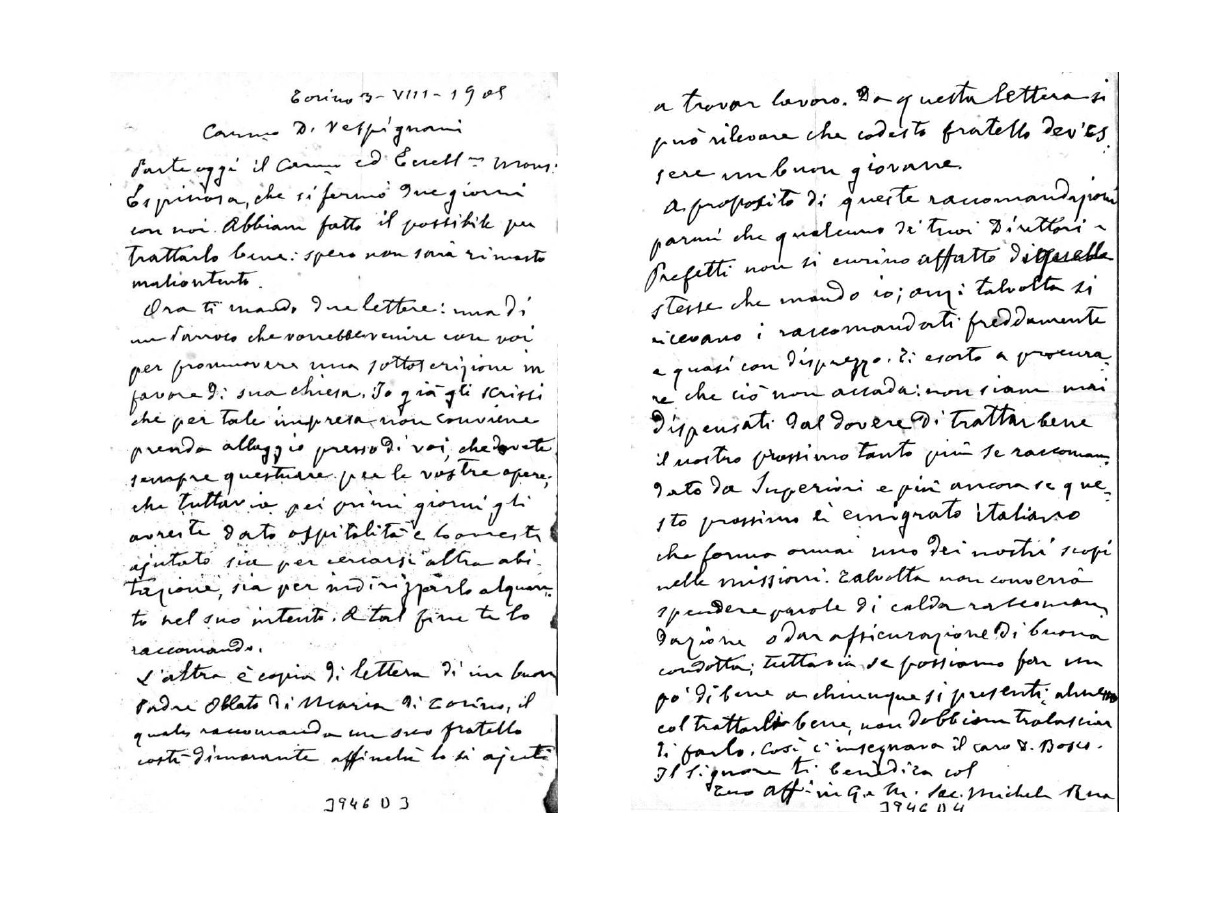 Torino 3 - VIII - 1905
Carmo D. Vespignani
Parte oggi il Carmo ed Eccellmo Mons.
Espinosa, che si fermò due giorni
con noi. Abbiam fatto il possibile per
trattarlo bene: spero non sarà rimasto
malcontento.
Ora ti mando due lettere: una di
un Parroco che vorrebbe venire con voi
per promuovere una sottoscrizione in
favore di sua chiesa. Io già gli scrissi
che per tale impresa non conviene
prenda alloggio presso di voi, che dovete
sempre questuare per le vostre opere;
che tuttavia pei primi giorni gli
avreste dato ospitalità e lo avreste
ajutato sia per cercarsi altra abi-
tazione, sia per indirizzarlo alquan-
to nel suo intento. A tal fine te lo
raccomando.
L'altra è copia di lettera di un buon
Padre Oblato di Maria di Torino, il
quale raccomanda un suo fratello
costì dimorante affinchè lo si ajuti
3946 D 3
a trovar lavoro. Da questa lettera si
può rilevare che codesto fratello dev'es
sere un buon giovane.
A proposito di queste raccomandazioni
parmi che qualcuno de' tuoi Direttori e
Prefetti non si curino affatto di quelle
stesse che mando io; anzi talvolta si
ricevano i raccomandati freddamente
e quasi con disprezzo. Ti esorto a procura
re che ciò non accada: non siam mai
dispensati dal dovere di trattar bene
il nostro prossimo tanto più se raccoman
dato da Superiori e più ancora se que-
sto prossimo è emigrato italiano
che forma ormai uno dei nostri scopi
nelle missioni. Talvolta non converrà
spendere parole di calda raccoman
dazione o dar assicurazione di buona
condotta; tuttavia se possiamo far un
po' di bene a chiunque si presenti, almeno
col trattarlo bene, non dobbiam tralasciar
di farlo. Così c'insegnava il caro D. Bosco.
Il Signore ti benedica col
Tuo Aff in G. e M. Sac. Michele Rua
3946 D 4